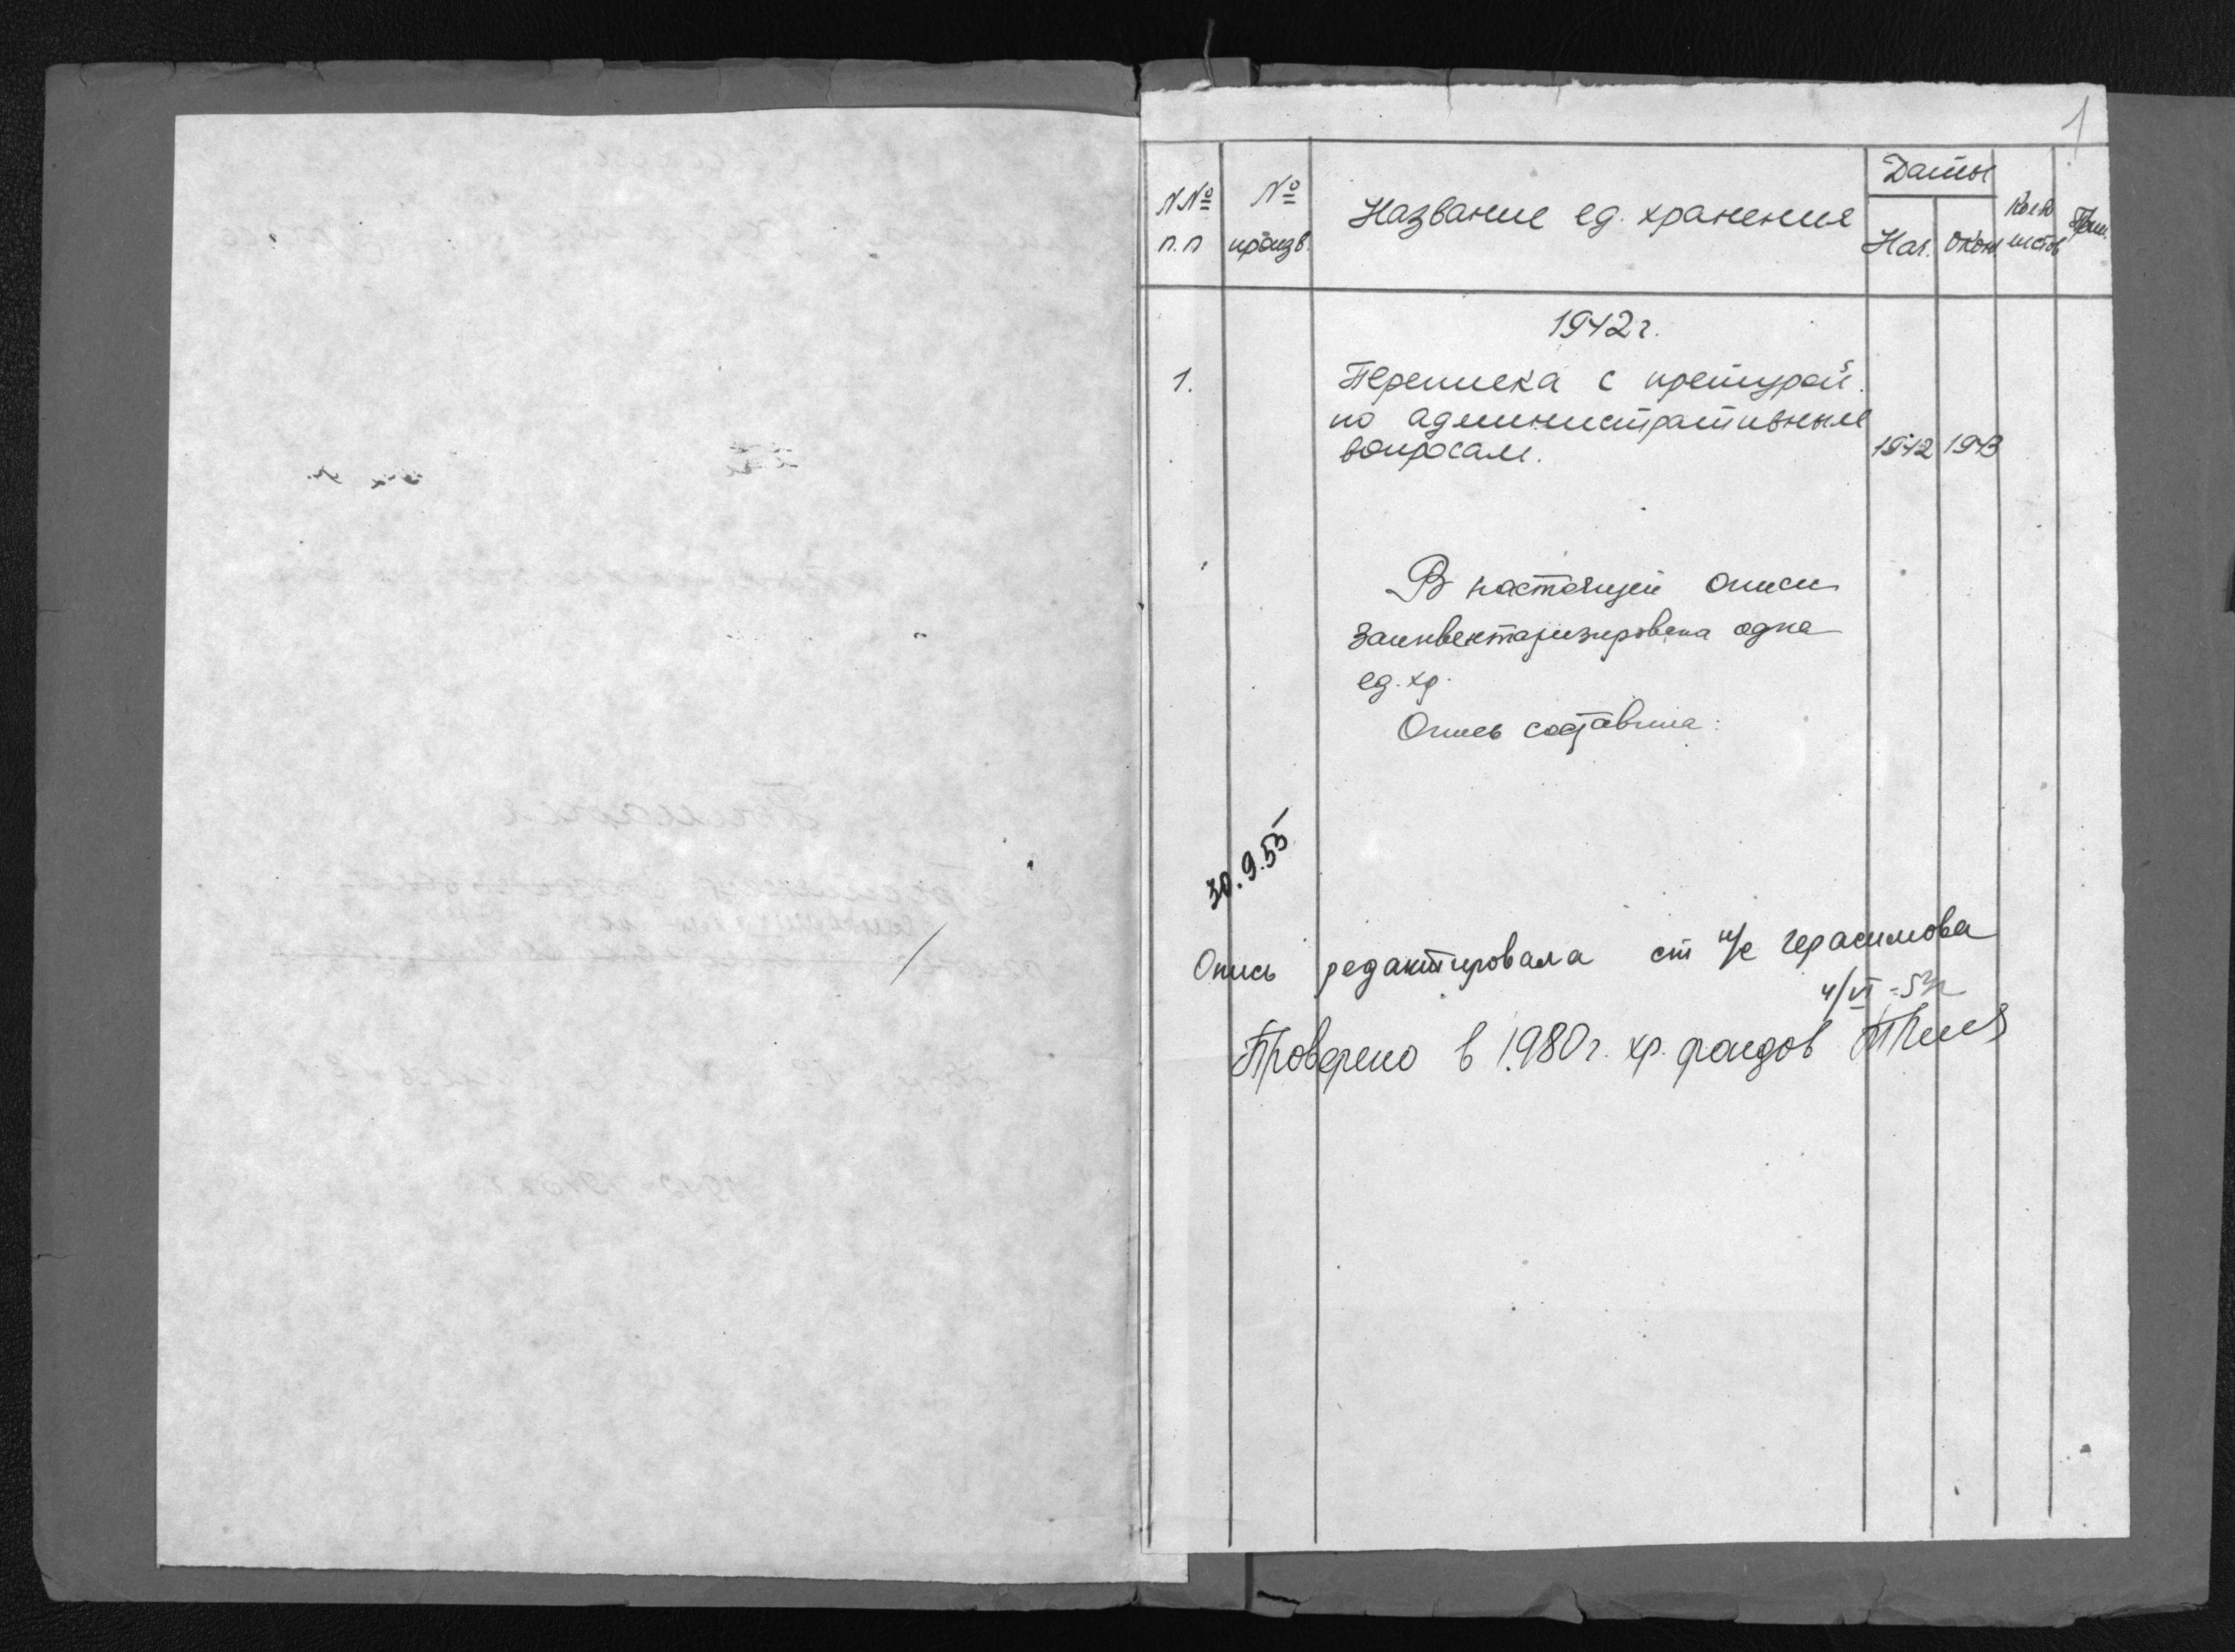 1
NNº п.п
Nº произв.
Название ед. хранения
Даты
Нач.
Окон.
Кол-во листов
Прим.
1942 г.
1.
Переписка с претурой
по административным
вопросам.
1942 1943
В настоящей описи
заинвентаризирована одна
ед. хр.
Опись составила:
30.9.55
Опись редактировала ст н/с Герасимова
4/VI
Проверено в 1980 г. хр. фондов